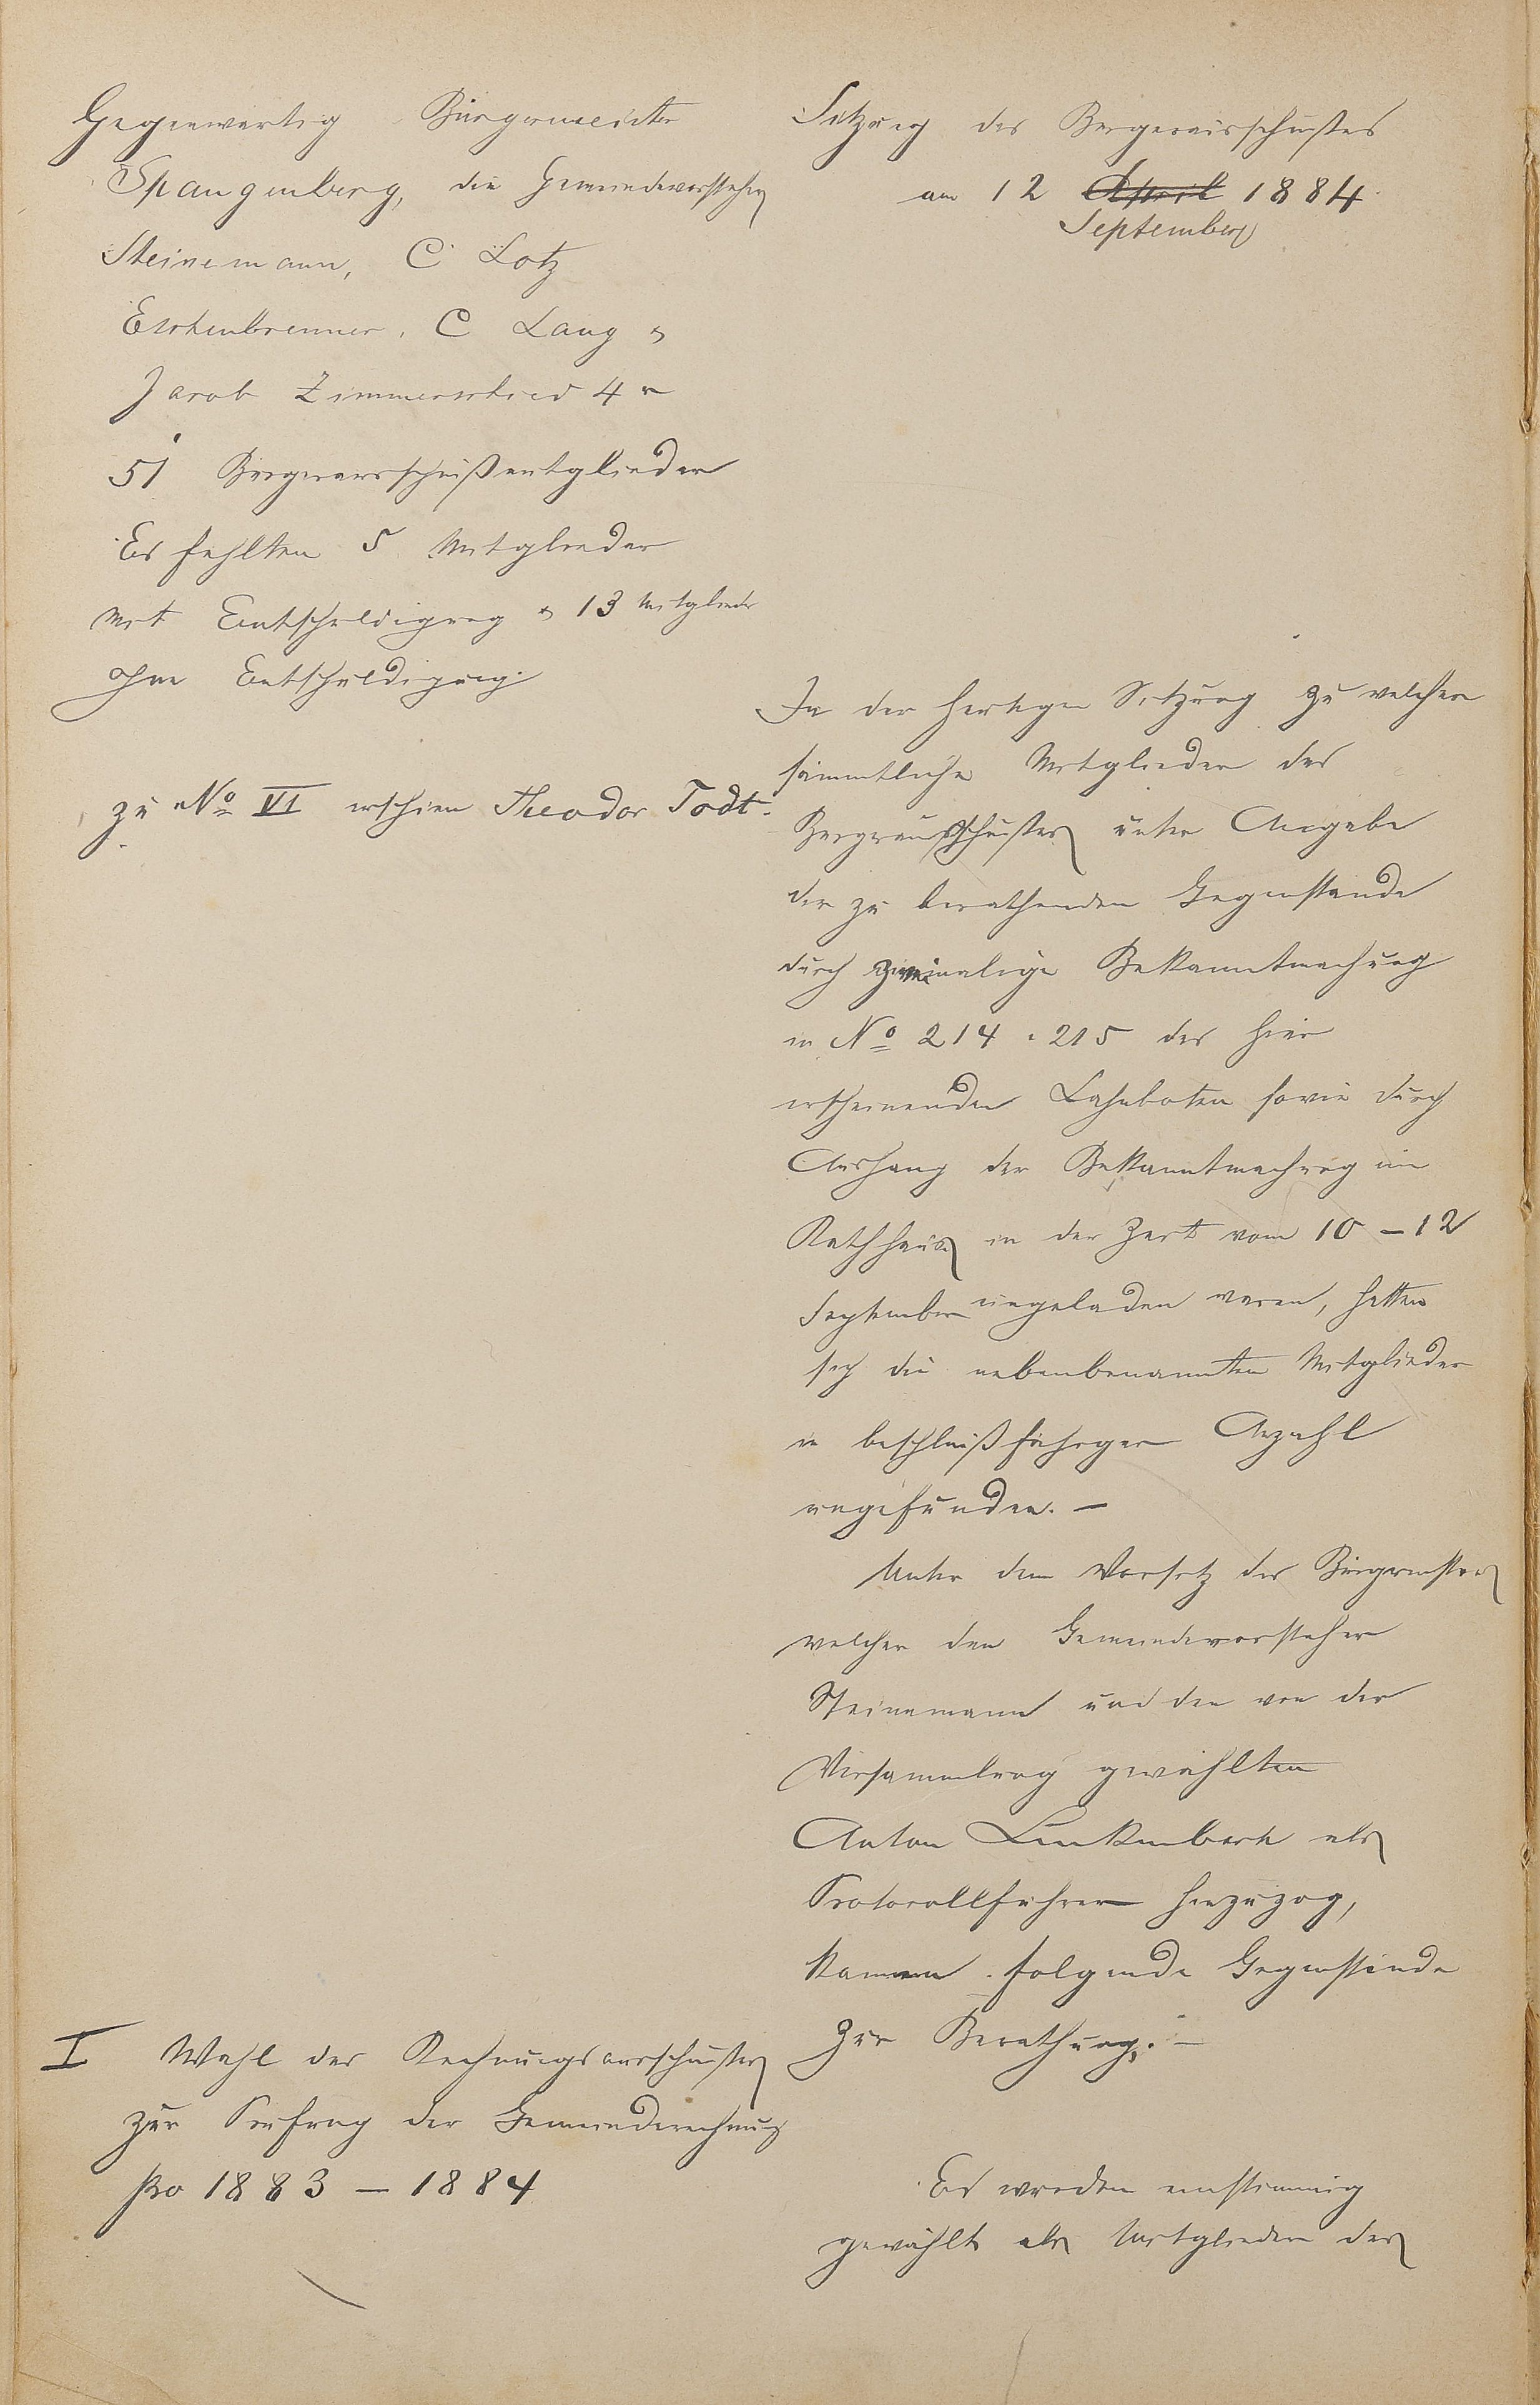 Gegenwärtig Bürgermeister
Spangenberg, die Gemeindevorsteher
Steinemann, C Lotz
Eschenbrenner, C Lang &
Jacob Zimmerschied 4r
51 Bürgerausschußmitglieder
Es fehlten 5 Mitglieder
mit Entschuldigung & 13 Mitglieder
ohne Entschuldigung.
zu No VI erschien Theodor Todt.
I Wahl des Rechnungsausschusses
zur Prüfung der Gemeinderechnung
pro 1883 – 1884
Sitzung des Bürgerausschusses
am 12 April 1884.
September
In der heutigen Sitzung zu welcher
sämmtliche Mitglieder des
Bürgerausschusses unter Angabe
der zu berathenden Gegenstände
durch zweimalige Bekanntmachung
in No 214 & 215 des hier
erscheinenden Lahnboten sowie durch
Aushang der Bekanntmachung im
Rathhause in der Zeit vom 10 – 12
September eingeladen waren, hatten
sich die nebenbenannten Mitglieder
in beschlußfähiger Anzahl
eingefunden. –
Unter dem Vorsitz des Bürgermeisters
welcher den Gemeindevorsteher
Steinemann und den von der
Versammlung gewählten
Anton Linkenbach als
Protocollführer hinzuzog,
kamen folgende Gegenstände
zur Berathung. –
Es wurden einstimmig
gewählt als Mitglieder des